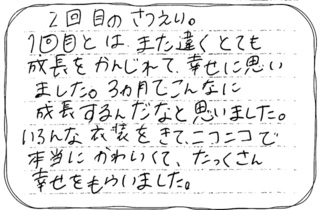 2回目のさつえい。
1回目とは また違くとても
成長をかんじれて、幸せに思い
ました。3ヵ月でこんなに
成長するんだなと思いました。
いろんな 衣装をきて、ニコニコで
本当に かわいくて、たっくさん
幸せをもらいました。